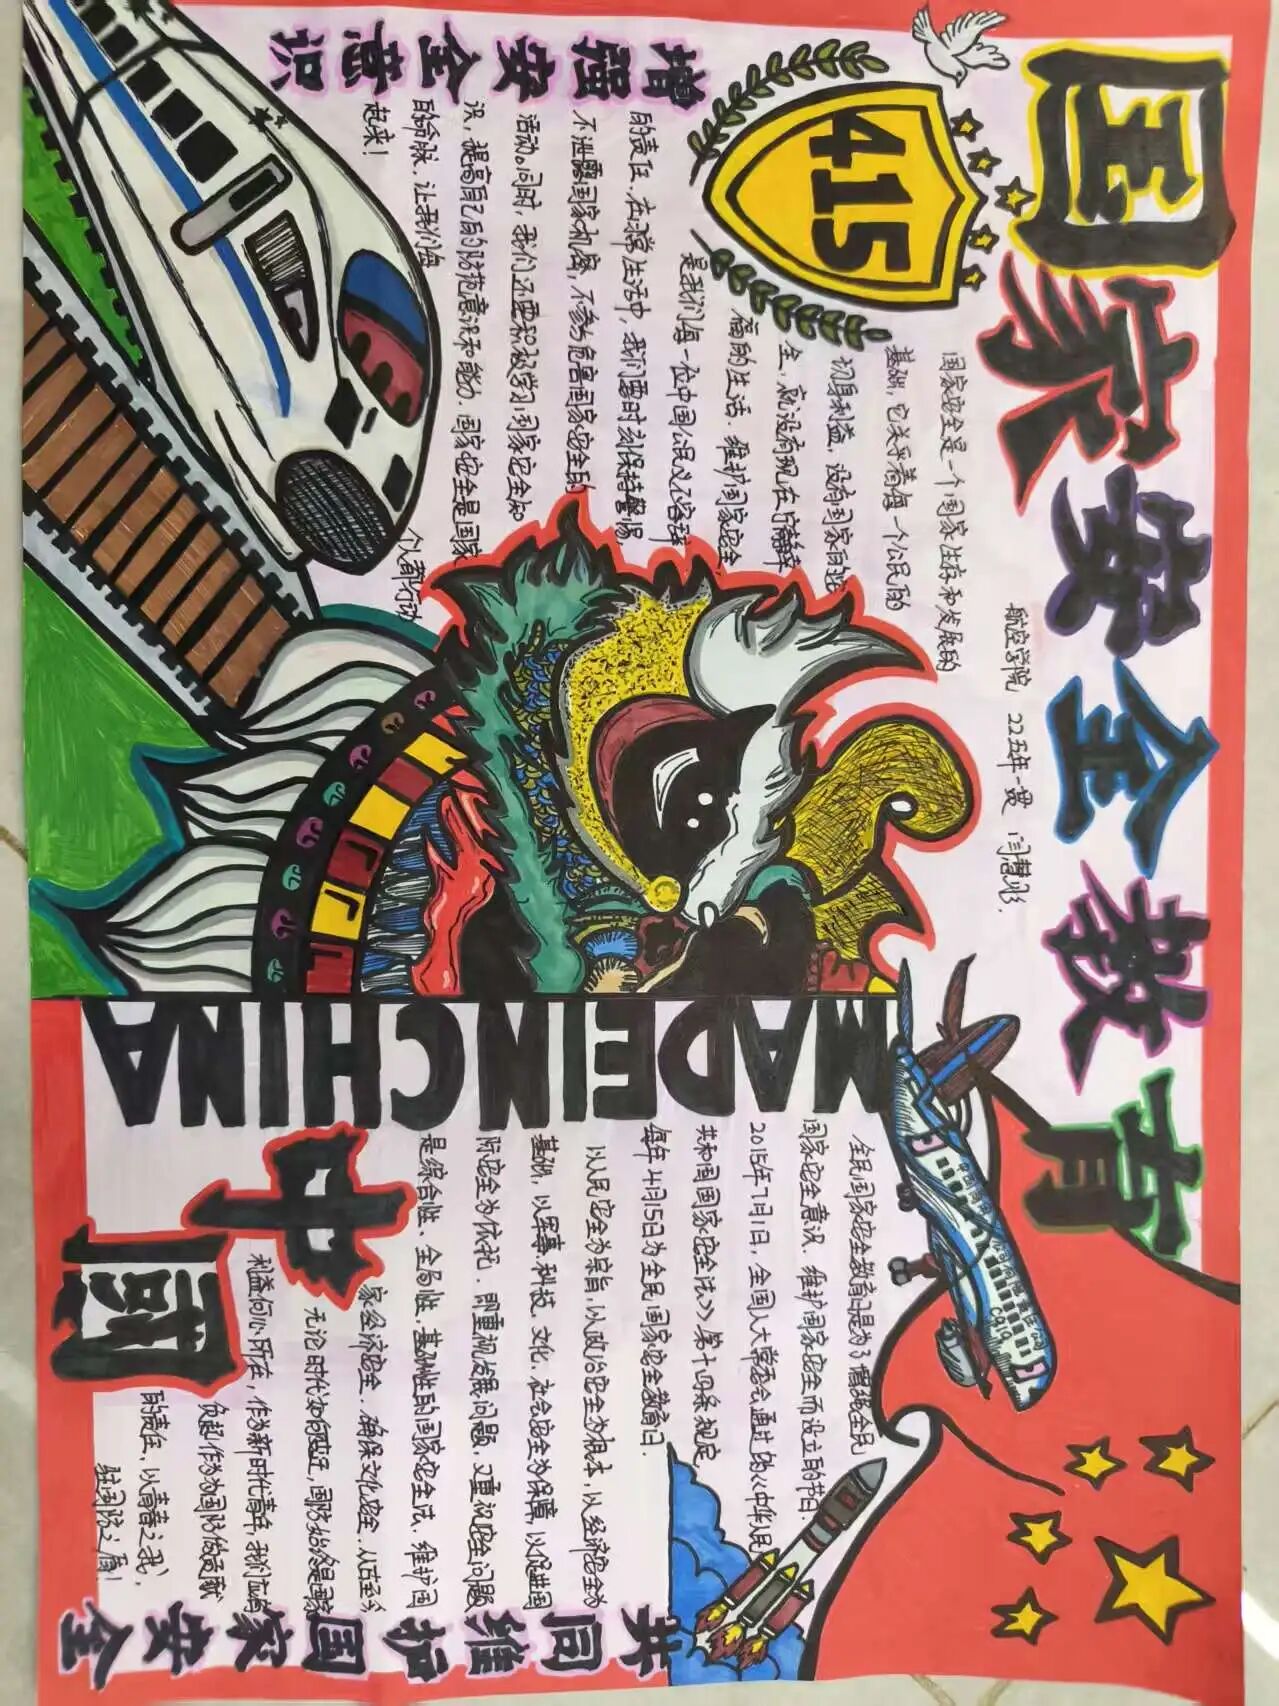 国家安全教育
航空学院 22五年一贯 闫慧彤.
415
国家安全是一个国家生存和发展的
基础,它关乎着每一个公民的
切身利益,没有国家的安
全,就没有现在宁静幸
福的生活.维护国家安全
是我们每一位中国公民义不容辞
的责任.在日常生活中,我们要时刻保持警惕,
不泄露国家机密,不参与危害国家安全的
活动。同时,我们还要积极学习国家安全知
识,提高自己的防范意识和能力.国家安全是国家
的命脉.让我们每个人都行动
起来!
增强安全意识
MADEINCHINA
中国
全民国家安全教育日是为了增强全民
国家安全意识.维护国家安全而设立的节日.
2015年7月1日,全国人大常委会通过的《中华人民
共和国国家安全法》第十四条规定,
每年4月15日为全民国家安全教育日.
以人民安全为宗旨,以政治安全为根本,以经济安全为
基础,以军事.科技.文化.社会安全为保障,以促进国
际安全为依托.即重视发展问题.又重视安全问题
是综合性.全局性.基础性的国家安全法.维护国
家经济安全.确保文化安全.从古至今
无论时代如何变迁,国防始终是国家
利益核心所在,作为新时代青年,我们应肩
负起作为国防做贡献
的责任,以青春之我,
驻国防之盾!
共同维护国家安全
中国商飞
C919